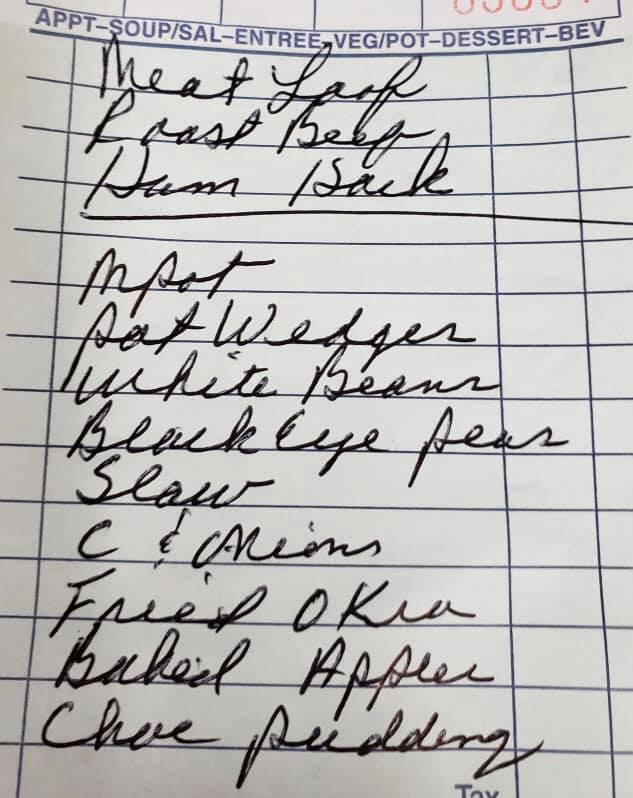 APPT–SOUP/SAL–ENTREE–VEG/POT–DESSERT–BEV
Meat Loaf
Roast Beef
Ham Back
M pot
pot Wedges
White Beans
Black Eye peas
Slaw
C & Onions
Fried OKra
Baked Apples
Choc pudding
Tax